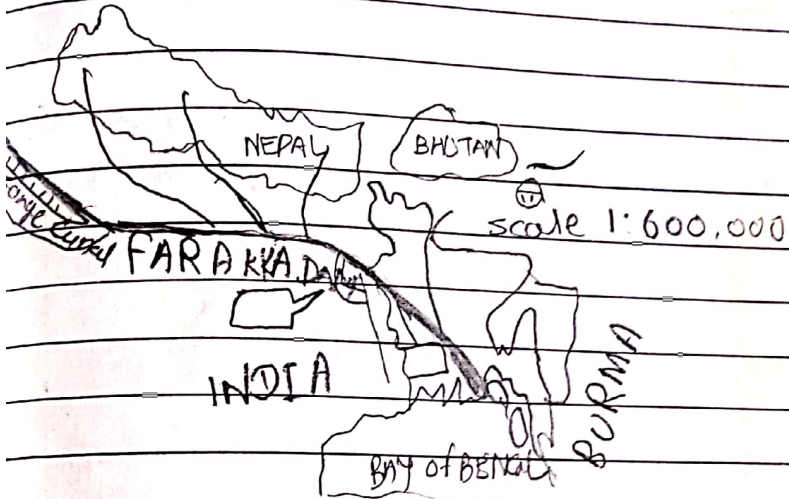 NEPAL
BHUTAN
scale 1:600,000
FARAKKA DAM
INDIA
BURMA
BAY of BENGAL